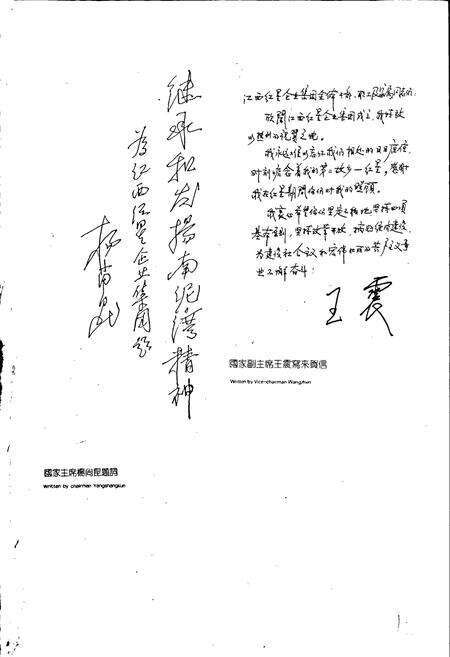 继承和发扬南泥湾精神
为江西红星企业集团题
杨尚昆
國家主席楊尚昆題詞
Written by chairman Yangshangkun
江西红星企业集团全体干部、职工及家属同志们:
欣闻江西红星企业集团成立,我特致
以热烈的祝贺之忱。
我永远难以忘记我们相处的日日夜夜,
时刻怀念着我的第二故乡—红星,感谢
我在红星期间给你们对我的照顾。
我衷心希望你们坚定不移地坚持四项
基本原则,坚持改革开放,
为建设社会主义和宏伟的共产主义事
业而奋斗!
王震
國家副主席王震寫來賀信
Written by Vice-chairman Wangzhen